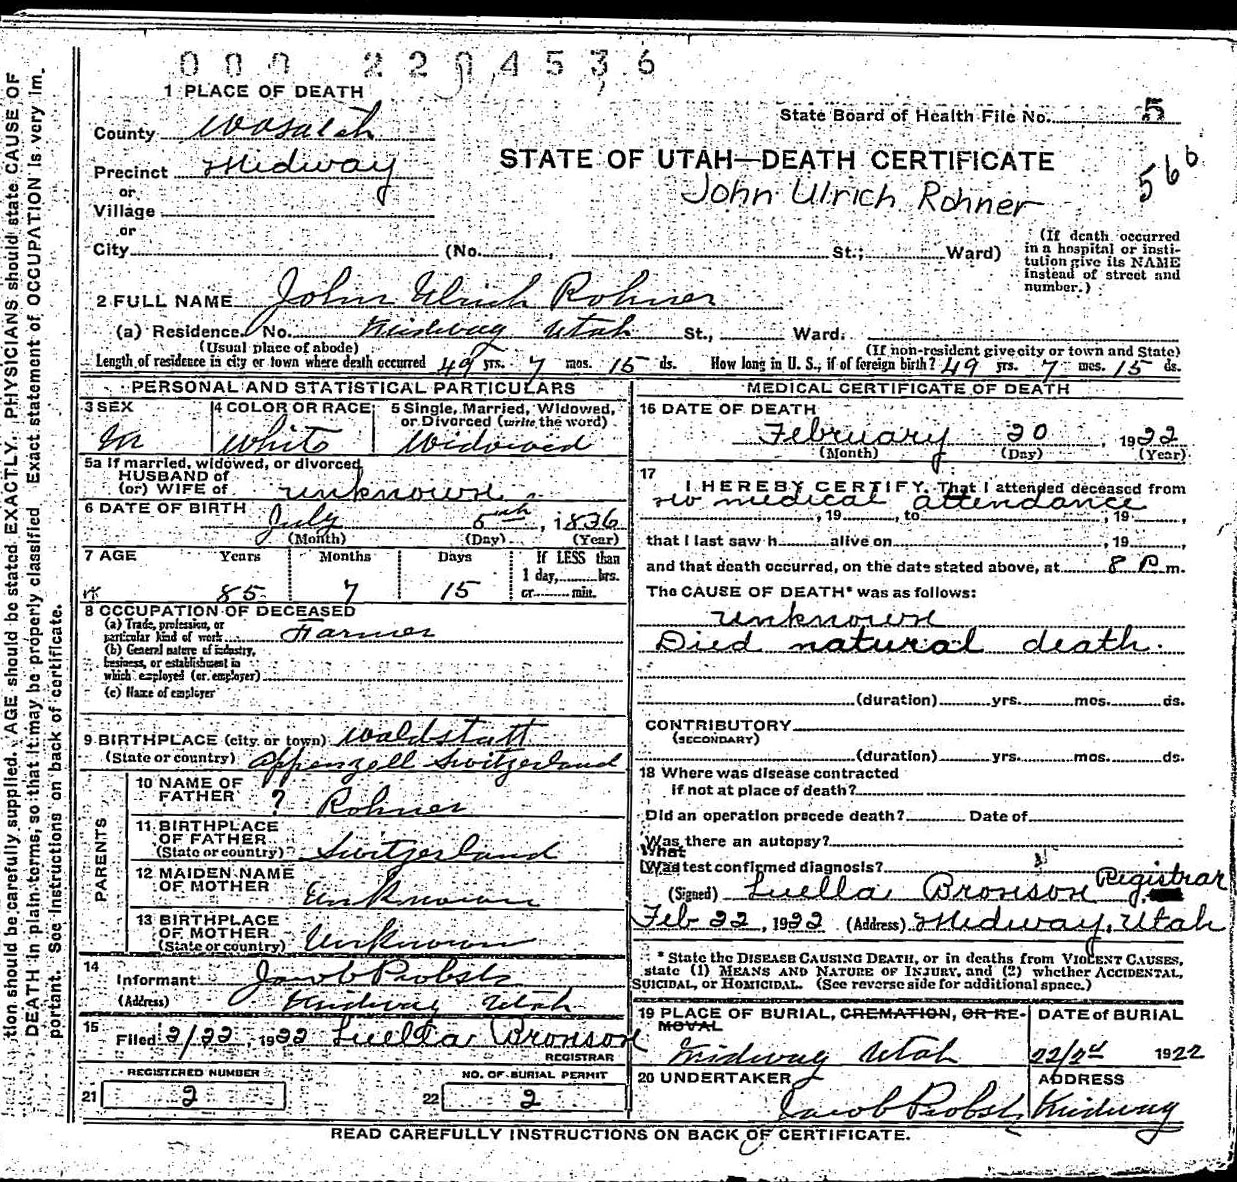 000 2204536
1 PLACE OF DEATH
State Board of Health File No. 5
County Wasatch
STATE OF UTAH—DEATH CERTIFICATE
566
Precinct Midway
John Ulrich Rohner
or
Village
or
City (No. , St.; Ward)
(If death occurred in a hospital or insti-
tution give its NAME
instead of street and
number.)
2 FULL NAME John Ulrich Rohner
(a) Residence. No. Midway Utah St., Ward.
(Usual place of abode) (If non-resident give city or town and State)
Length of residence in city or town where death occurred 49 yrs. 7 mos. 15 ds. How long in U. S., if of foreign birth? 49 yrs. 7 mos. 15 ds.
PERSONAL AND STATISTICAL PARTICULARS
3 SEX
M
4 COLOR OR RACE
White
5 Single, Married, Widowed,
or Divorced (write the word)
Widowed
5a If married, widowed, or divorced
HUSBAND of
(or) WIFE of unknown
6 DATE OF BIRTH July 5th, 1836
(Month) (Day) (Year)
7 AGE Years Months Days If LESS than
1 day, hrs.
or min.
85 7 15
8 OCCUPATION OF DECEASED
(a) Trade, profession, or
particular kind of work Farmer
(b) General nature of industry,
business, or establishment in
which employed (or employer)
(c) Name of employer
9 BIRTHPLACE (city or town) Waldstatt
(State or country) Appenzell Switzerland
PARENTS
10 NAME OF
FATHER ? Rohner
11 BIRTHPLACE
OF FATHER
(State or country) Switzerland
12 MAIDEN NAME
OF MOTHER Unknown
13 BIRTHPLACE
OF MOTHER
(State or country) Unknown
14
Informant Jacob Probst
(Address) Midway Utah
15
Filed 2/22, 1922 Luella Bronson
REGISTRAR
REGISTERED NUMBER
21 2
NO. OF BURIAL PERMIT
22 2
MEDICAL CERTIFICATE OF DEATH
16 DATE OF DEATH
February 20, 1922
(Month) (Day) (Year)
17
I HEREBY CERTIFY, That I attended deceased from
no medical attendance
, 19 , to , 19 ,
that I last saw h alive on , 19 ,
and that death occurred, on the date stated above, at 8 P m.
The CAUSE OF DEATH* was as follows:
unknown
Died natural death.
(duration) yrs. mos. ds.
CONTRIBUTORY
(SECONDARY)
(duration) yrs. mos. ds.
18 Where was disease contracted
if not at place of death?
Did an operation precede death? Date of
Was there an autopsy?
What
Was test confirmed diagnosis?
(Signed) Luella Bronson Registrar
Feb 22, 1922 (Address) Midway, Utah
* State the DISEASE CAUSING DEATH, or in deaths from VIOLENT CAUSES,
state (1) MEANS AND NATURE OF INJURY, and (2) whether ACCIDENTAL,
SUICIDAL, or HOMICIDAL. (See reverse side for additional space.)
19 PLACE OF BURIAL, CREMATION, OR RE-
MOVAL
Midway Utah
DATE of BURIAL
22/2d 1922
20 UNDERTAKER
Jacob Probst
ADDRESS
Midway
READ CAREFULLY INSTRUCTIONS ON BACK OF CERTIFICATE.
tion should be carefully supplied. AGE should be stated EXACTLY. PHYSICIANS should state CAUSE OF
DEATH in plain terms, so that it may be properly classified. Exact statement of OCCUPATION is very im-
portant. See instructions on back of certificate.